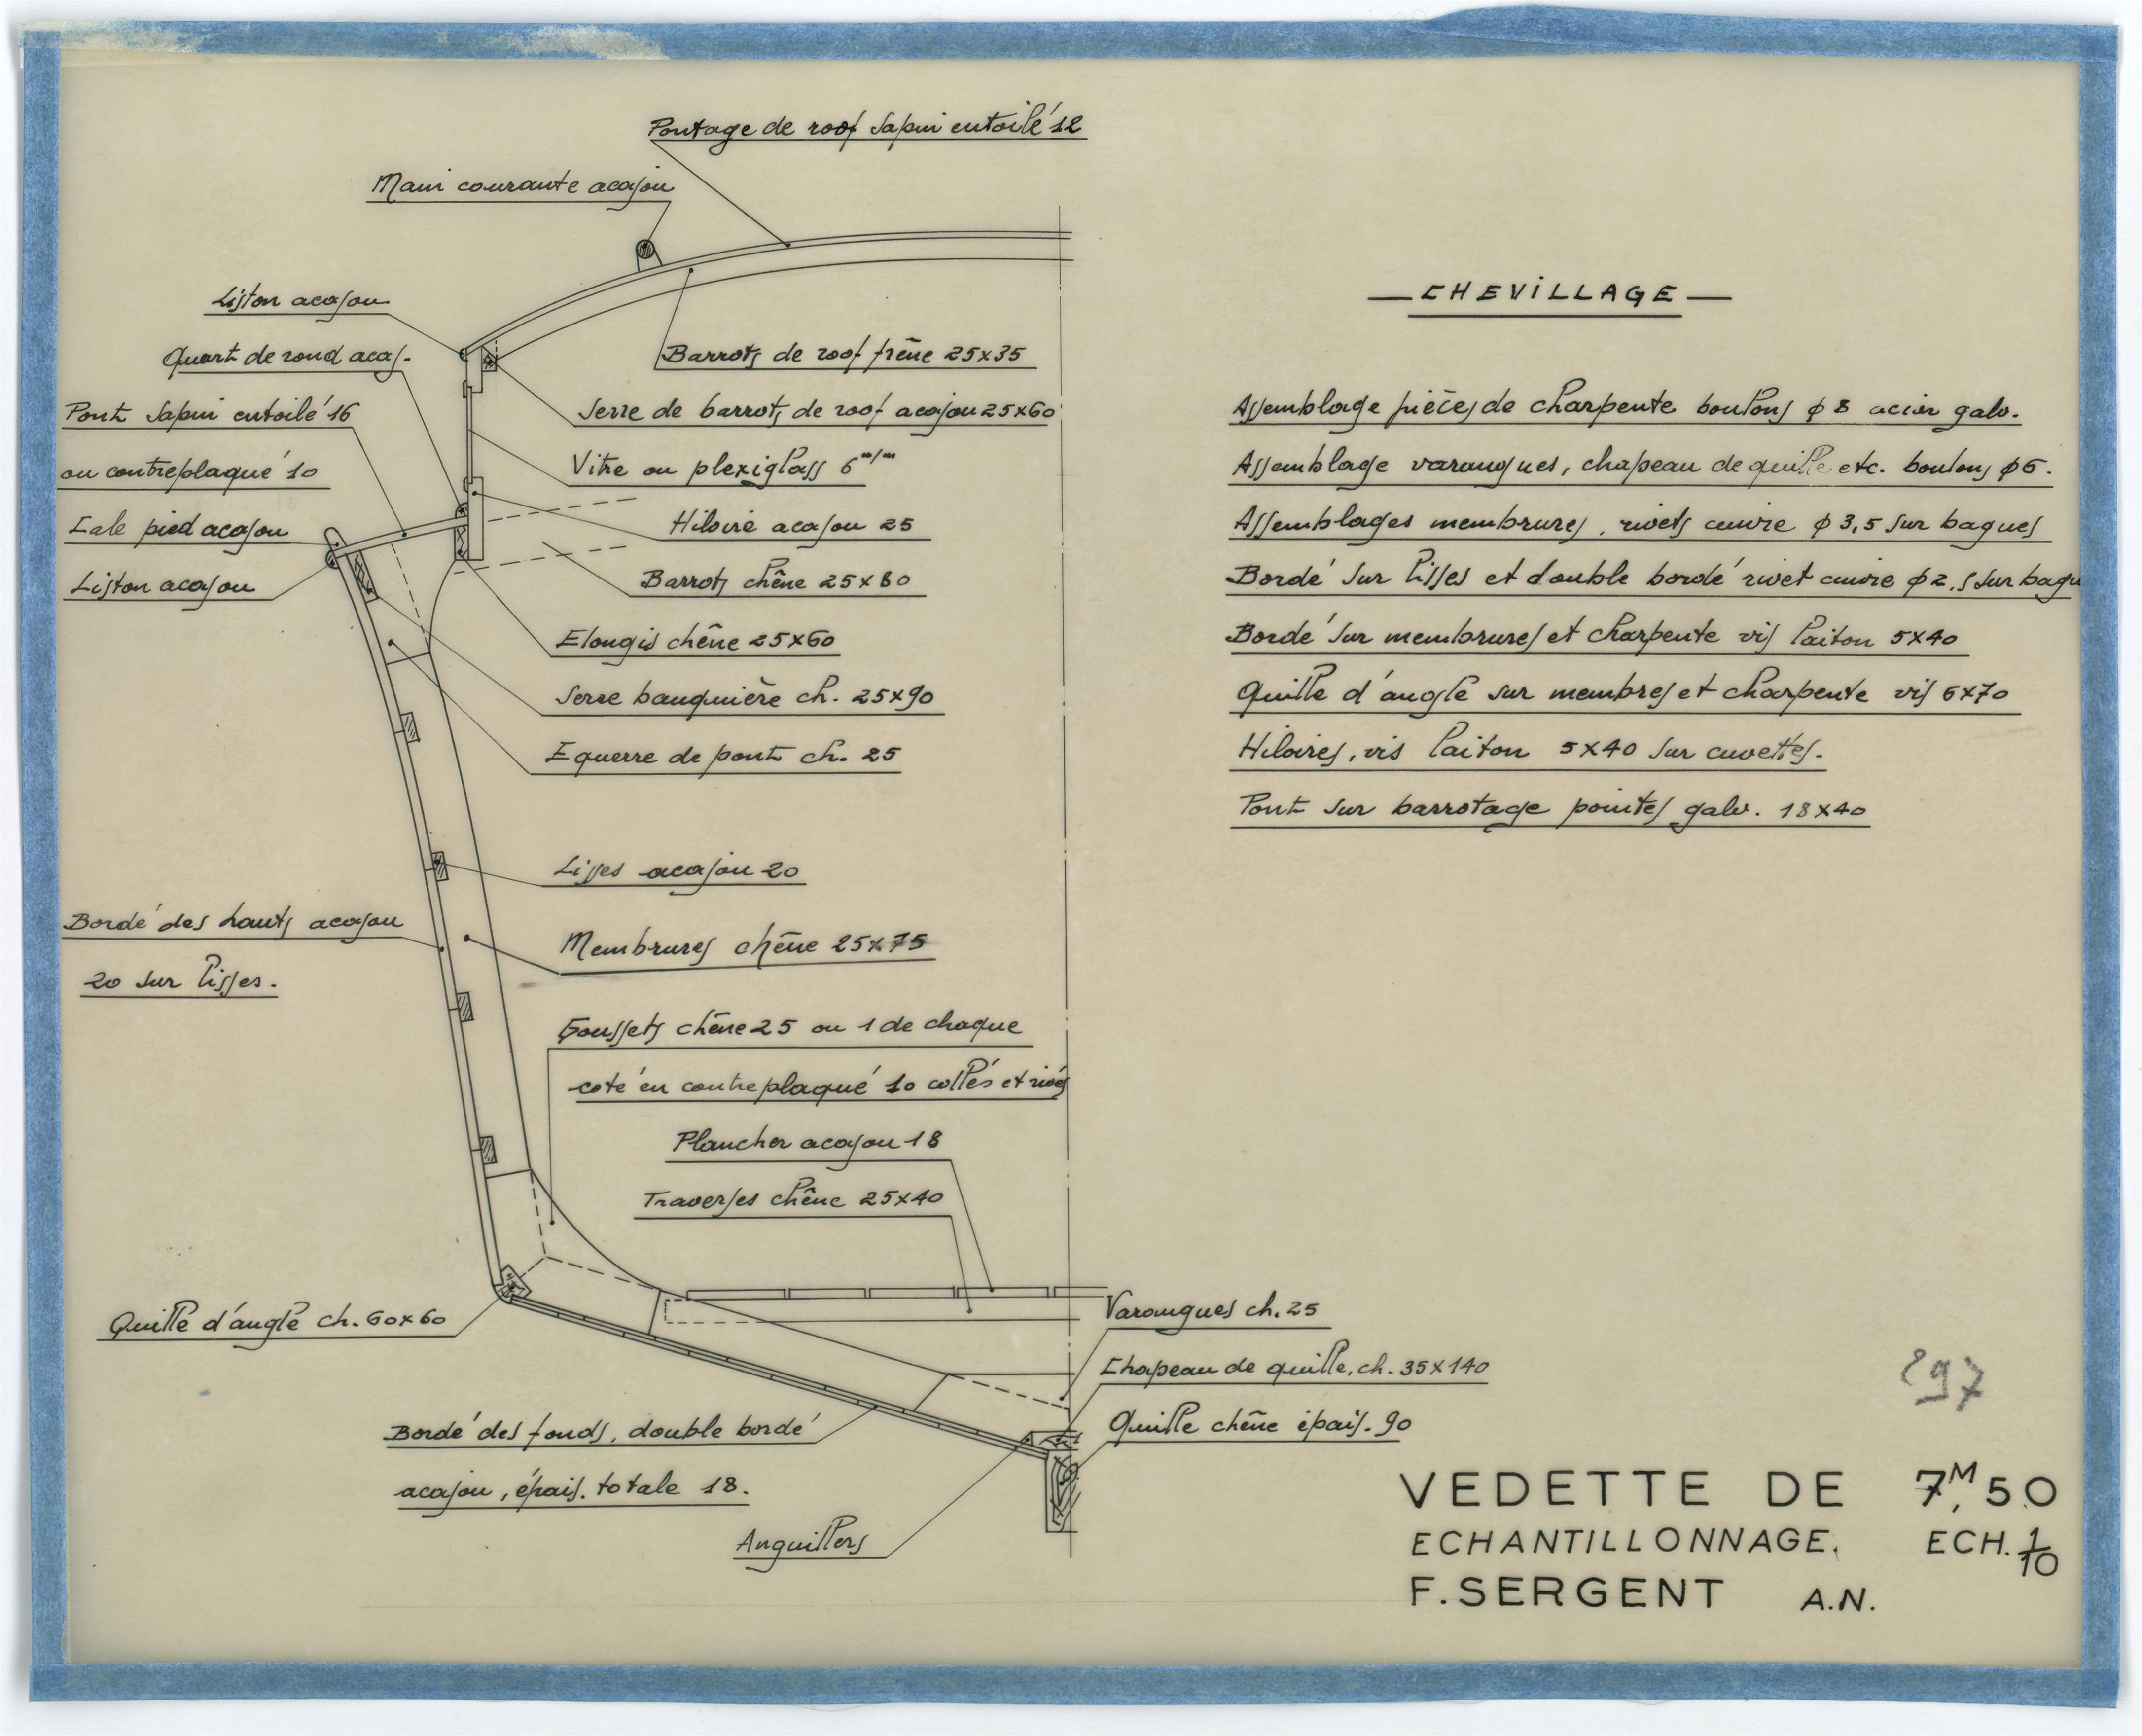 Pontage de roof sapin entoilé 12
Main courante acajou
Liston acajou
Quart de rond acaj.
Pont sapin entoilé 16
ou contreplaqué 10
Cale pied acajou
Liston acajou
Barrots de roof frêne 25x35
Serre de barrots de roof acajou 25x60
Vitre ou plexiglass 6 m/m
Hiloire acajou 25
Barrots chêne 25x80
Elongis chêne 25x60
Serre bauquière ch. 25x90
Equerre de pont ch. 25
Lisses acajou 20
Bordé des hauts acajou
20 sur lisses.
Membrures chêne 25x75
Goussets chêne 25 ou 1 de chaque
coté en contreplaqué 10 collés et rivés
Plancher acajou 18
Traverses chêne 25x40
Quille d'angle ch. 60x60
Varangues ch. 25
Chapeau de quille. ch. 35x140
Quille chêne épais. 90
Bordé des fonds, double bordé
acajou, épais. totale 18.
Anguillers
CHEVILLAGE
Assemblage pièces de charpente boulons ϕ 8 acier galv.
Assemblage varangues, chapeau de quille etc. boulons ϕ 6.
Assemblages membrures, rivets cuivre ϕ 3,5 sur bagues
Bordé sur lisses et double bordé rivet cuivre ϕ 2,5 sur bagu
Bordé sur membrures et charpente vis laiton 5x40
Quille d'angle sur membres et charpente vis 6x70
Hiloires, vis laiton 5x40 sur cuvettes.
Pont sur barrotage pointes galv. 18x40
297
VEDETTE DE 7M,50
ECHANTILLONNAGE. ECH. 1/10
F. SERGENT A.N.